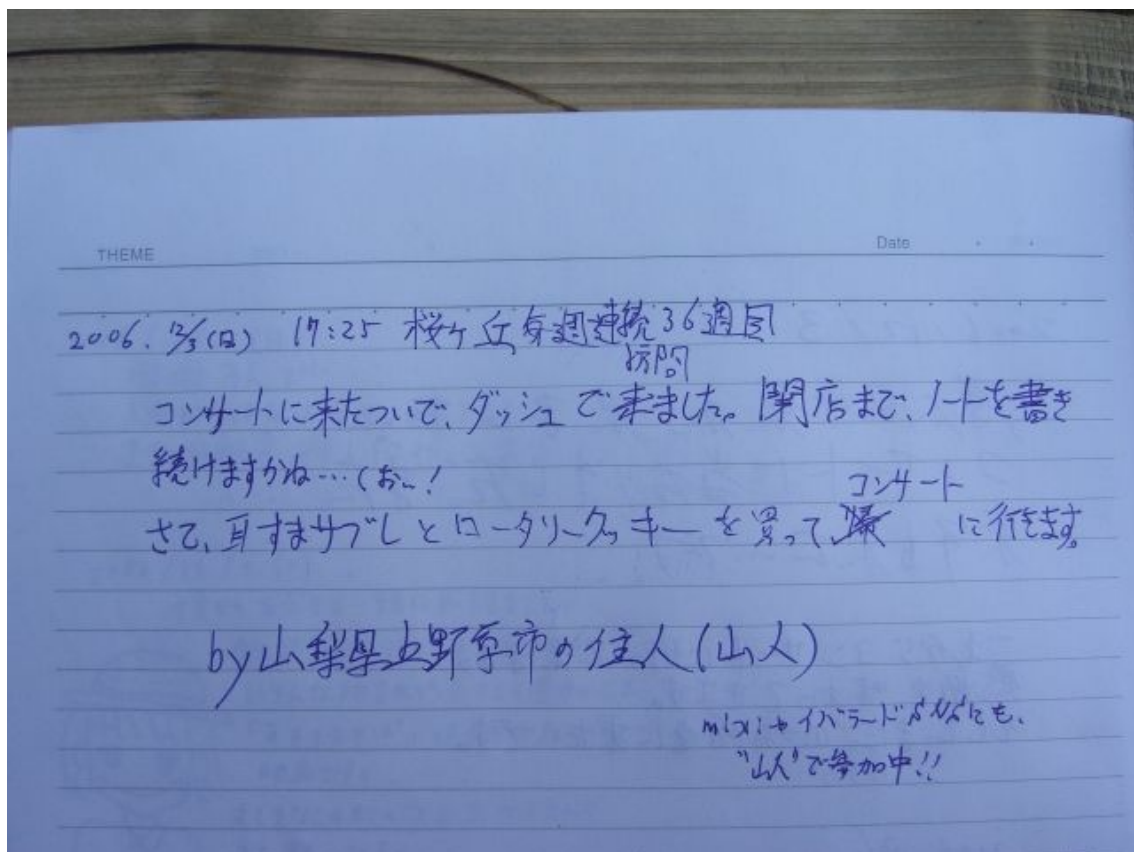 THEME
Date
2006.12/3(日) 17:25 桜ヶ丘毎週連続36週目
訪問
コンサートに来たついで、ダッシュで来ました。閉店まで、ノートを書き
続けますかね…(おい!
コンサート
さて、耳すまサブレとロータリークッキーを買って、に行きます。
by山梨県上野原市の住人(山人)
mixiやイバラード
"山人"で参加中!!